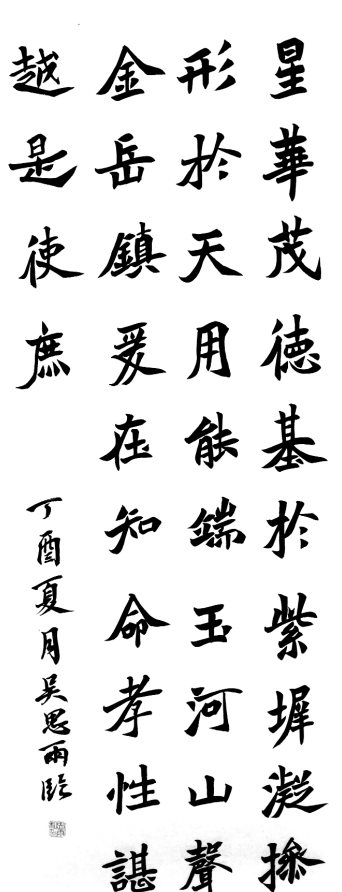 星華茂徳基於紫墀凝摻
形於天用能端玉河山聲
金岳鎮爰在知命孝性諶
越是使庶
丁酉夏月吳思雨臨